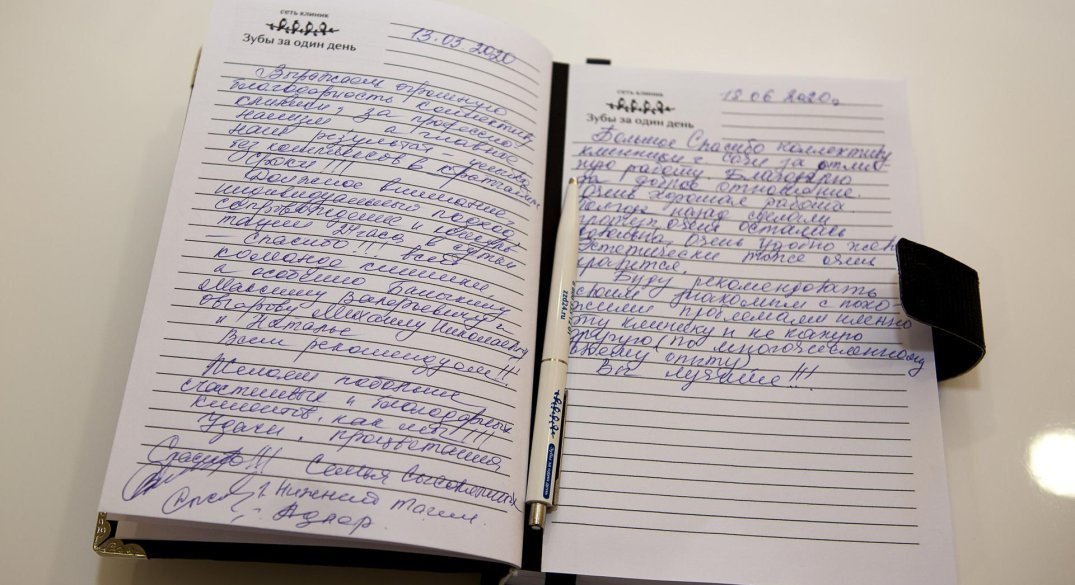 сеть клиник
Зубы за один день
13.03 2020
Выражаем огромную
благодарность коллективу
клиники, за профессио-
нализм, а главное
наш результат – успешно
без комплексов в кратчайшие
сроки !!!
Должное внимание,
индивидуальный подход,
сопровождение и
24 часа в сутки
– Спасибо!!! всей
команде клиники,
а особенно
Максиму Валерьевичу,
Михаилу
и Наталье
Всем рекомендуем!!!
Желаем побольше
счастливых и благодарных
клиентов, как мы!!!
Удачи, процветания
Спасибо!!! Семья
г. Нижний Тагил
г. Адлер.
сеть клиник
Зубы за один день
18 06 2020г
Большое Спасибо коллективу
клиники г Сочи за отлич-
ную работу. Благодарю
за доброе отношение.
Очень хорошая работа.
Полгода назад сделали
протез, очень осталась
довольна. Очень удобно и
эстетически тоже очень
нравится.
Буду рекомендовать
своим знакомым с похо-
жими проблемами именно
эту клинику и не какую
другую (по многочисленному
опыту)
Вы лучшие!!!
zzd24.ru